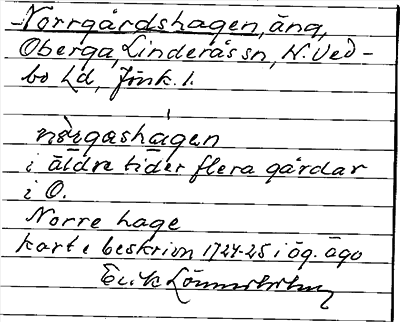 Norrgårdshagen, äng,
Oberga, Linderås sn, N. Ved-
bo hd, Jönk. l.
nòrgashagen
i äldre tider flera gårdar
i O.
Norre hage
karta beskrivn 1724-25 i äg. ägo
Erik